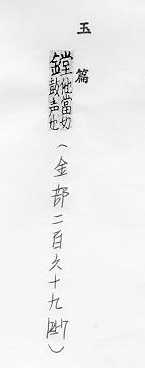 玉篇
鏜他當切
鼓声也
(金部二百六十九)